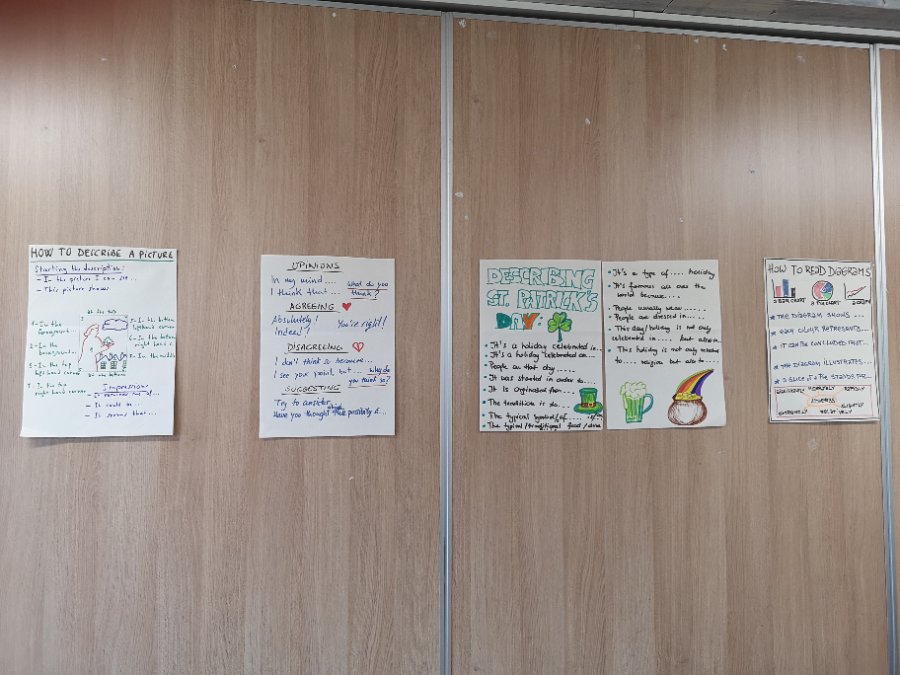 HOW TO DESCRIBE A PICTURE
Starting the description:
- In the picture I can see...
- This picture shows...
- In the
foreground...
- In the
background...
- In the top
left hand corner
- In the top
right hand corner
- In the bottom
left hand corner
- In the bottom
right hand c
- In the middle
Impression:
- It reminds me of...
- It could be...
- It seems that...
OPINIONS
In my mind....
I think that....
What do you
think?
AGREEING
Absolutely!
Indeed!
You're right!
DISAGREEING
I don't think so because...
I see your point, but...
Why do
you think so?
SUGGESTING
Try to
Have you thought the possibility of...
DESCRIBING
ST. PATRICK'S
DAY:
• It's a holiday celebrated in...
• It's a holiday celebrated on...
• People on that day....
• It was started in order to...
• It is orginated from...
• The tradition is to...
• The typical symbol of.... is/...
• The typical/traditional food/drink
• It's a type of.... holiday
• It's famous all over the
world because....
• People usually wear.....
• People are dressed in....
• This day/holiday is not only
celebrated in.... but also in...
• This holiday is not only related
to.... religion but also to...
HOW TO READ DIAGRAMS
A BAR CHART
A PIE CHART
A GRAPH
★ THE DIAGRAM SHOWS ...
★ EACH COLOUR REPRESENTS...
★ IT CAN BE CONCLUDED THAT...
★ THE DIAGRAM ILLUSTRATES...
★ A SLICE OF A PIE STANDS FOR...